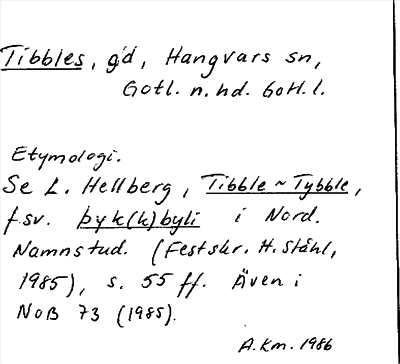 Tibbles, gd, Hangvars sn,
Gotl. n. hd. Gotl. l.
Etymologi.
Se L. Hellberg, Tibble ~ Tybble,
fsv. þyk(k)byli i Nord.
Namnstud. (Festskr. H. Ståhl,
1985), s. 55 ff. Även i
NoB 73 (1985).
A.Km. 1986